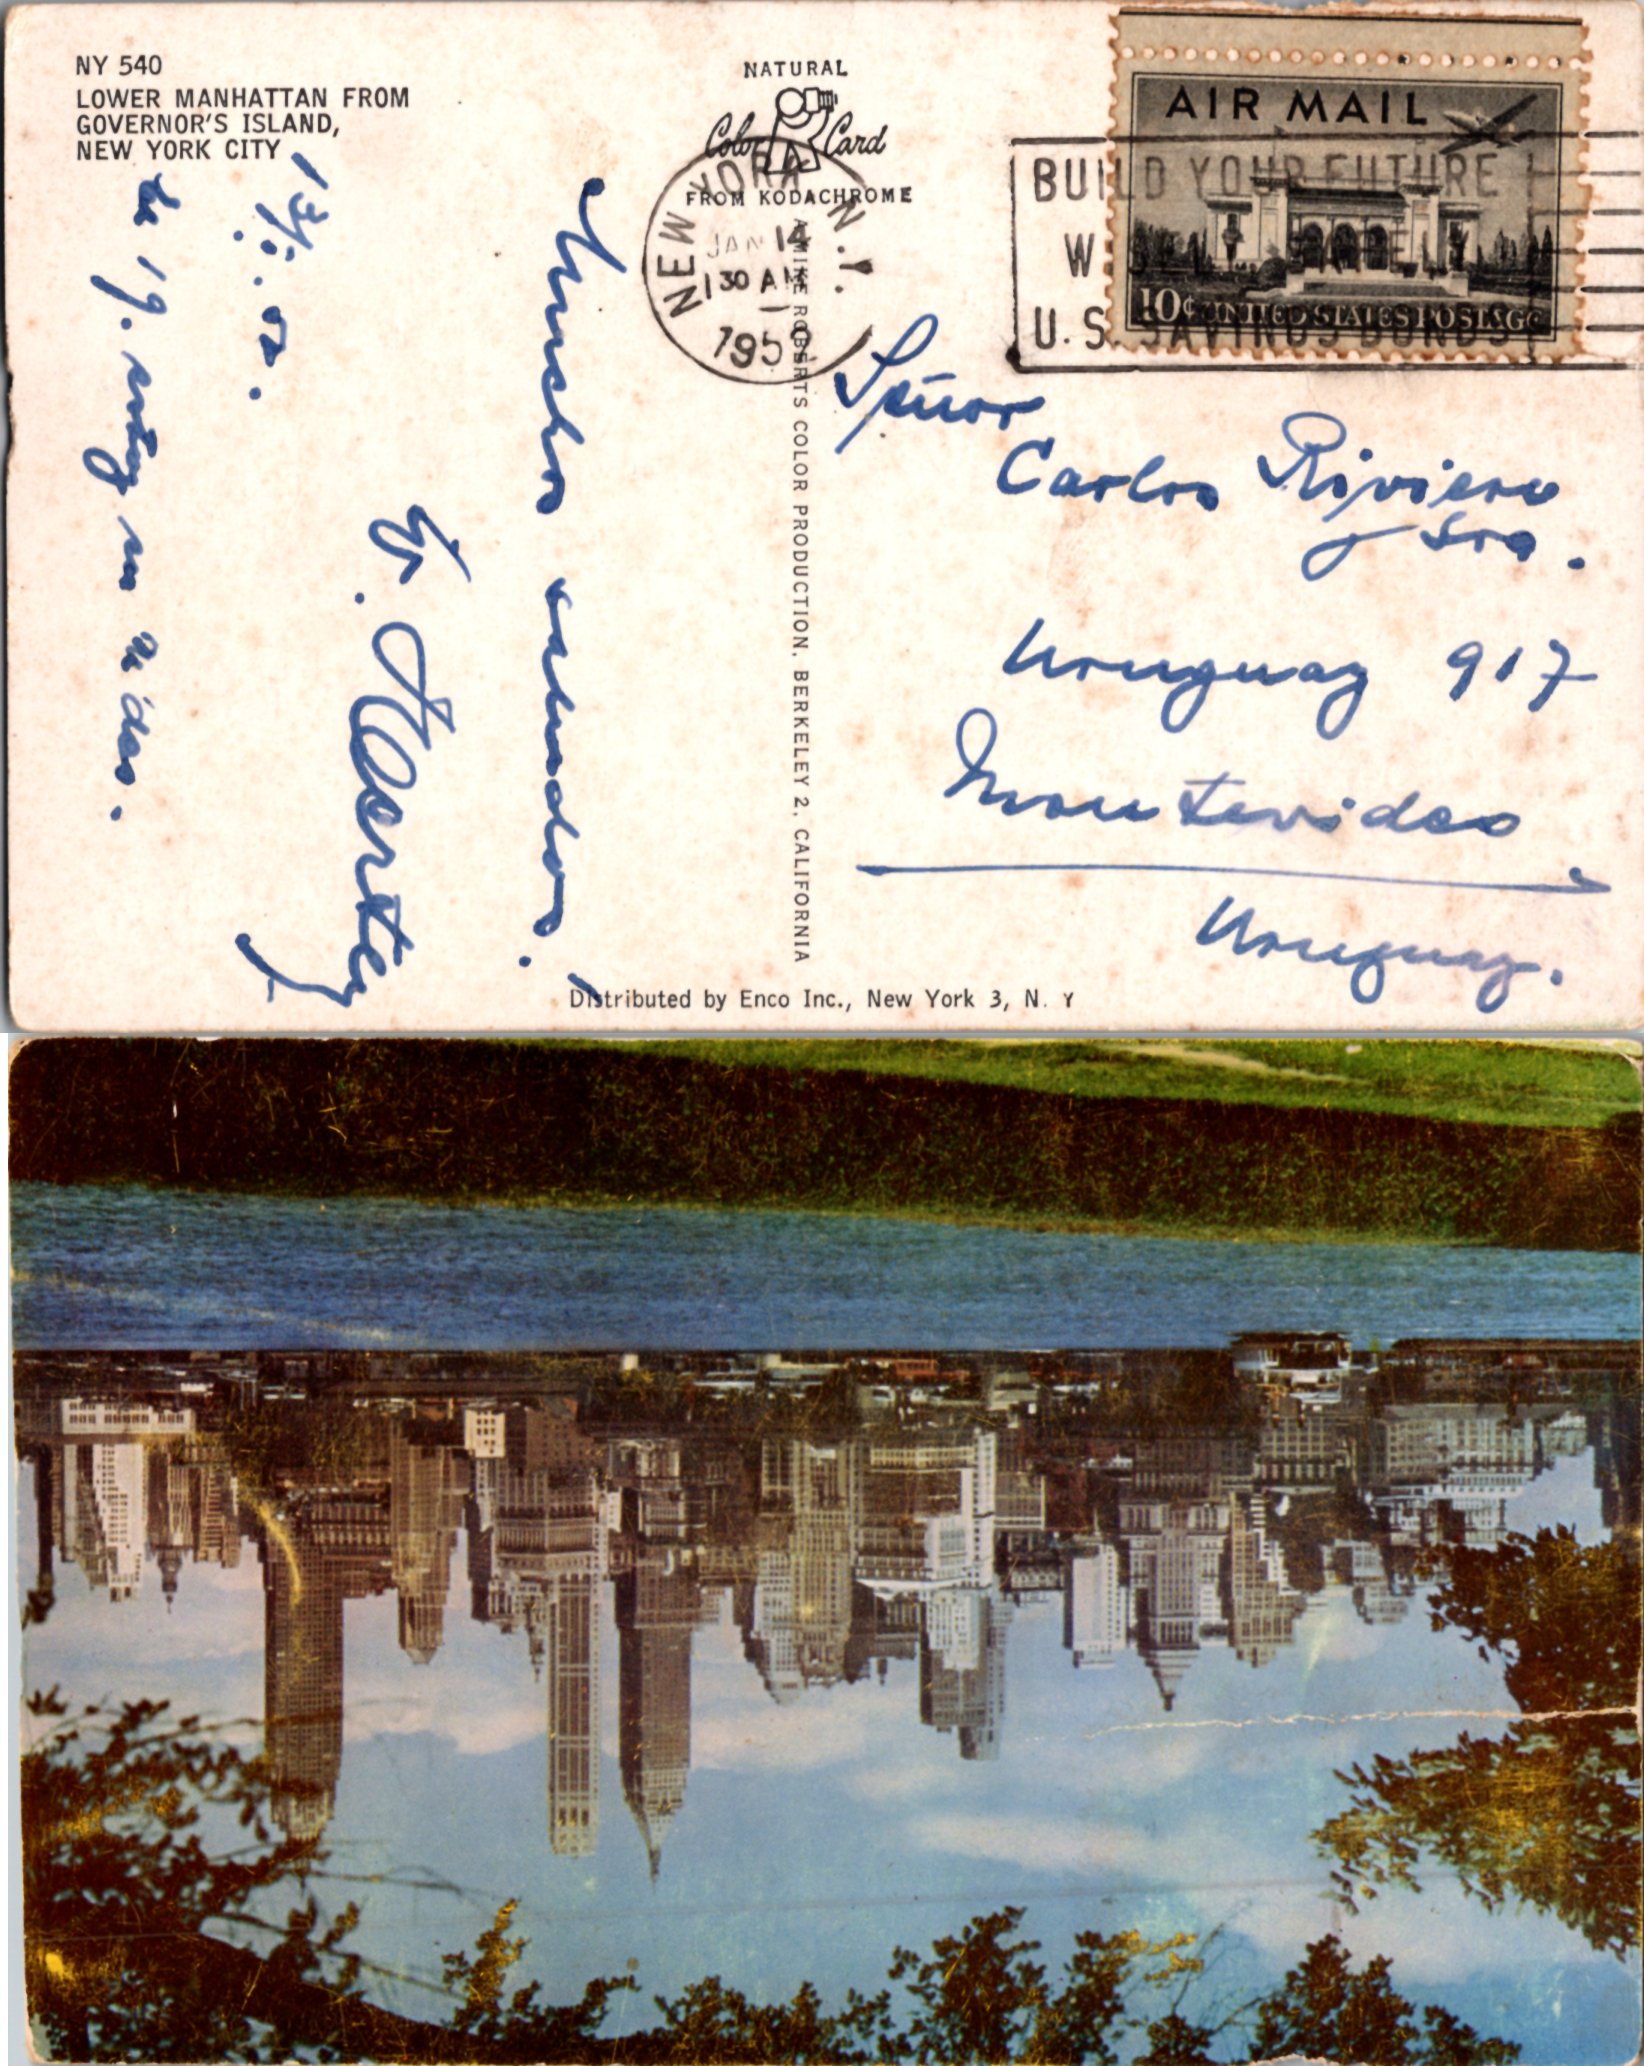 NY 540
LOWER MANHATTAN FROM
GOVERNOR'S ISLAND,
NEW YORK CITY
NATURAL
Color Card
FROM KODACHROME
A MIKE ROBERTS COLOR PRODUCTION, BERKELEY 2, CALIFORNIA
Distributed by Enco Inc., New York 3, N. Y
NEW YORK N.Y.
JAN 14
130 AM
195
AIR MAIL
10¢ UNITED STATES POSTAGE
BUILD YOUR FUTURE
U.S. SAVINGS BONDS
Muchos saludos!
Señor
Carlos Riviero
y Sra.
Uruguay 917
Montevideo
Uruguay.